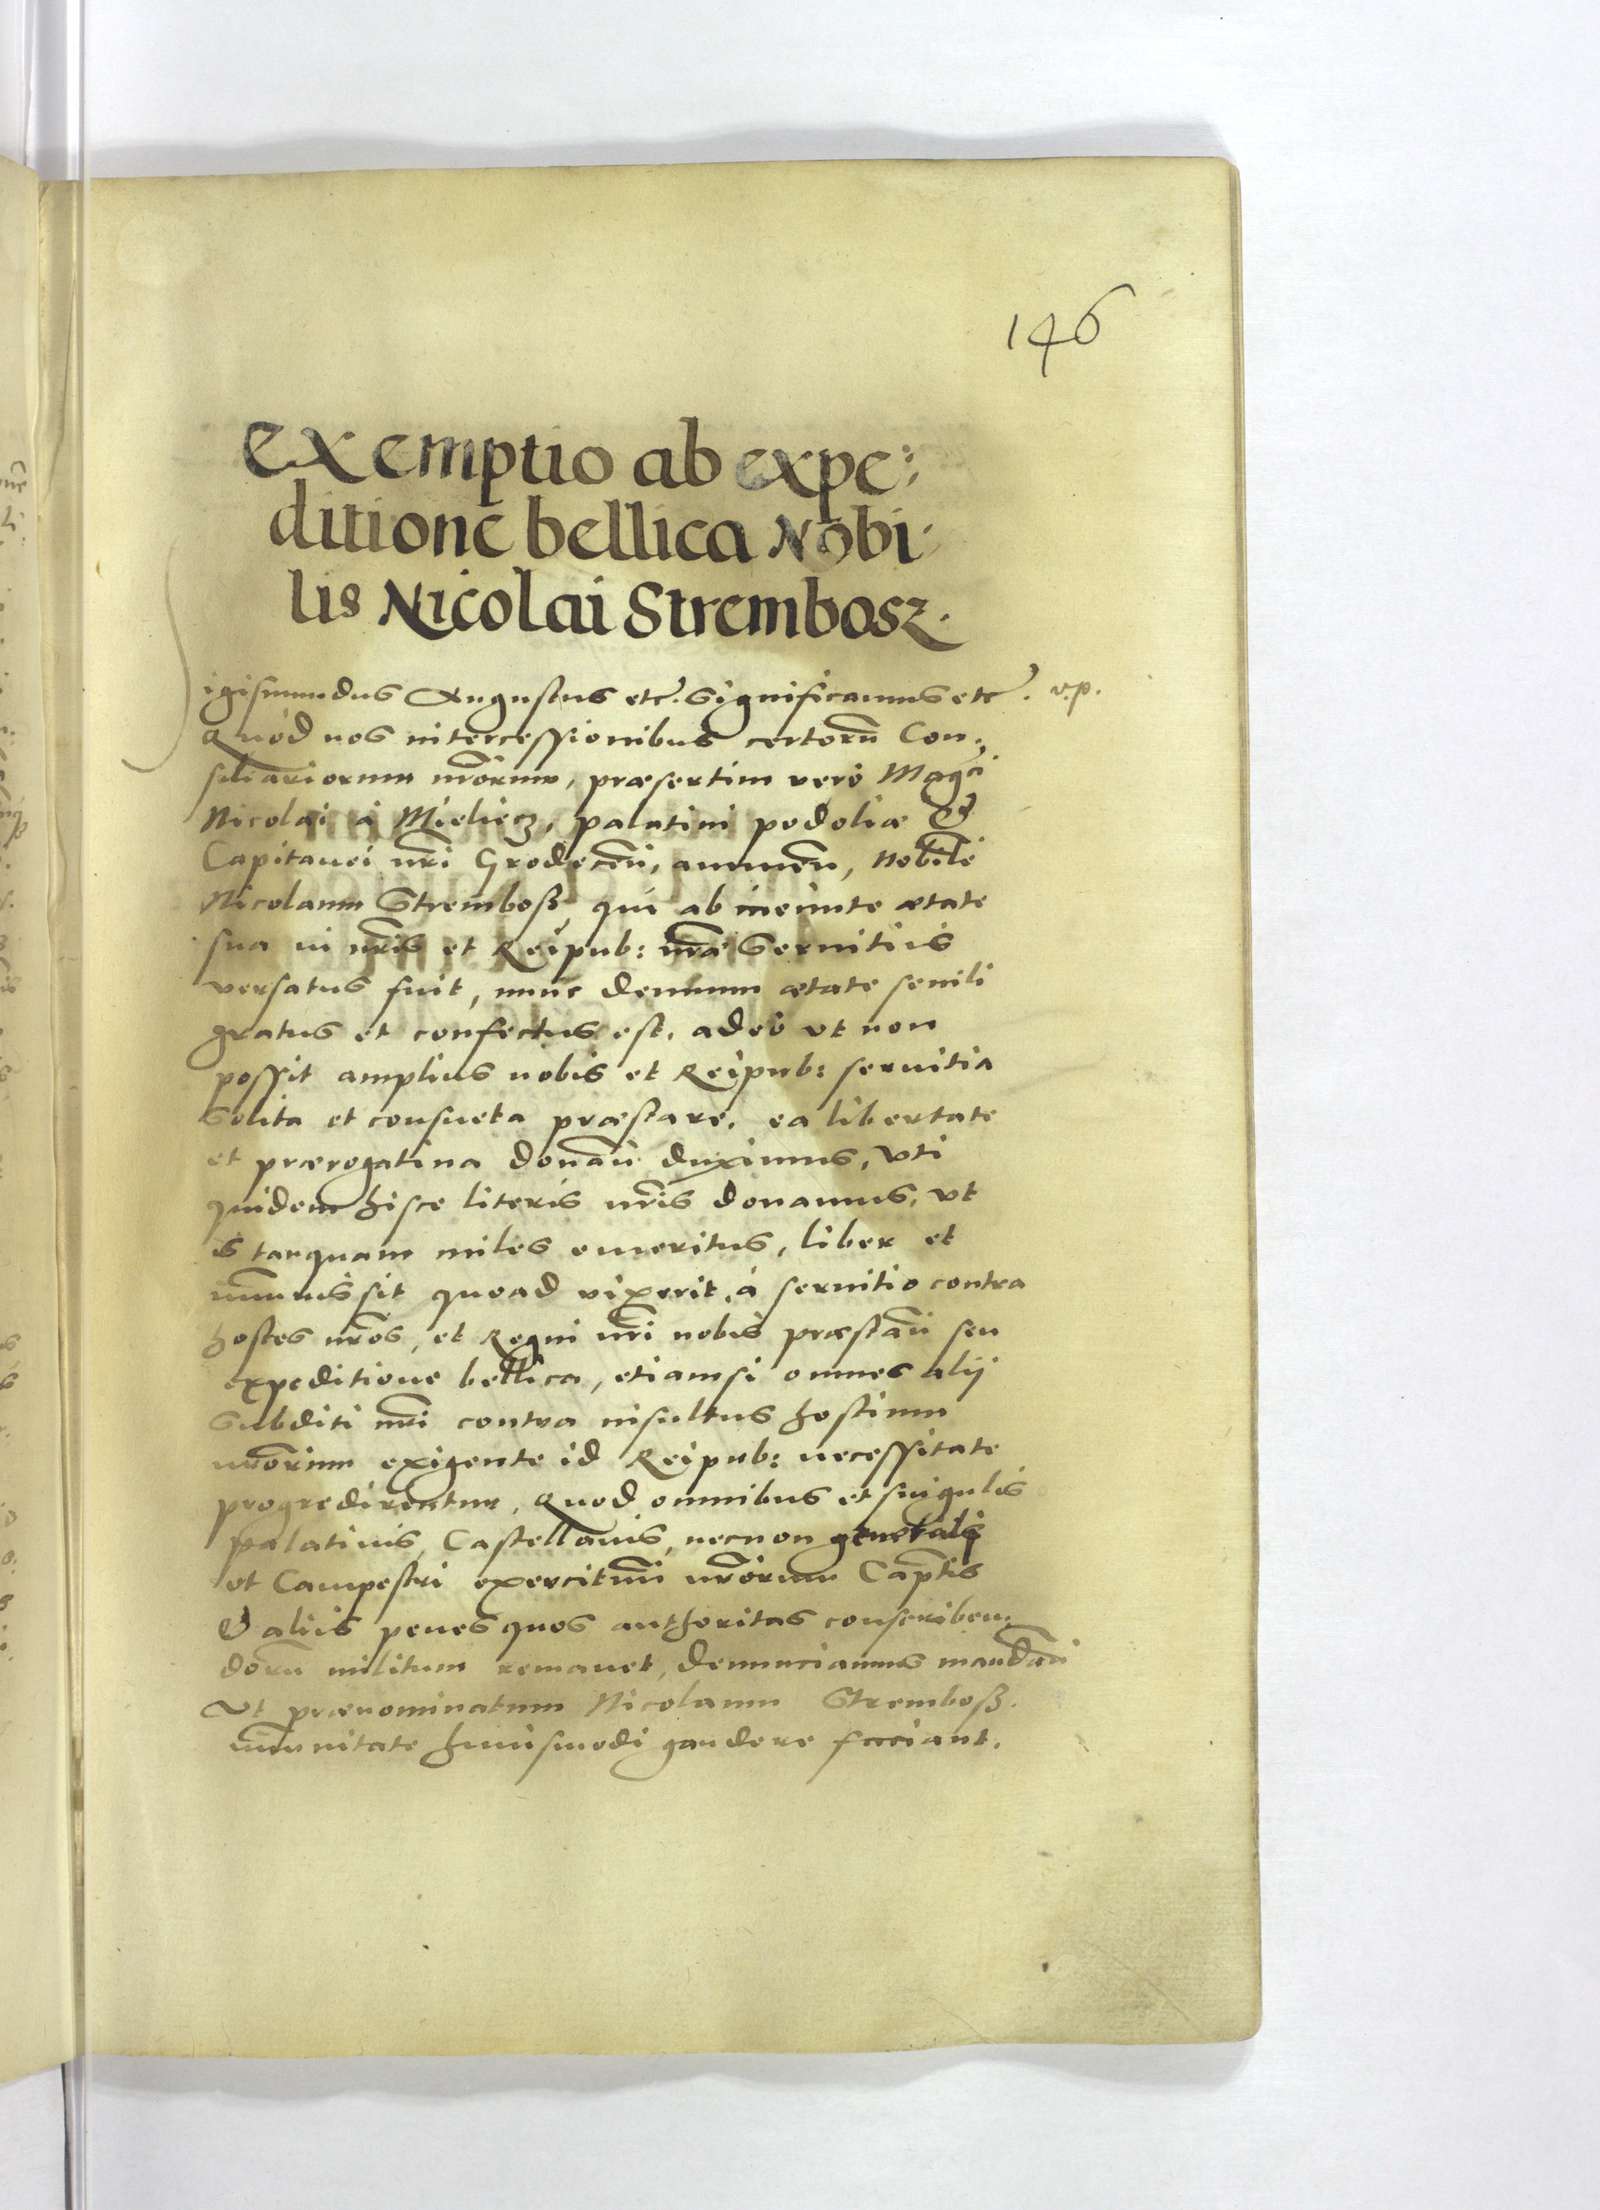 146
Exemptio ab expe:
ditione bellica Nobi:
lis Nicolai Strembosz.
Sigismundus Augustus etc. Significamus etc. v.p.
Quod nos intercessionibus certorũ Con:
siliariorum nr̃orum, præsertim verò Magci
Nicolai à Mieliecz, palatini podoliæ &
Capitanei nr̃i Grodecen̄,  Nobilẽ
Nicolaum Strembosz, qui ab ineunte ætate
sua in nr̃is et Reipub: nr̃æ Seruitiis
versatus fuit, nunc demum ætate senili
gratus et confectus est, adeò vt non
possit amplius nobis et Reipub: seruitia
Solita et consueta præstare, ea libertate
et prærogatiua donan̄ duximus, vti
quidem hisce literis nr̃is donamus, vt
is tanquam miles emeritus, liber et
im̃unis sit quoad vixerit, à seruitio contra
hostes nr̃os, et Regni nr̃i nobis præstan̄ seu
expeditione bellica, etiamsi omnes alij
Subditi nr̃i contra insultus hostium
nr̃orum exigente id Reipub: necessitate
progredirentur, Quod omnibus et singulis
palatinis, Castellanis, necnon generalis
et Campestri exercituũ nr̃orum Capt̃is
& aliis penes quos authoritas conscriben:
dorũ militum remanet, denunciamus mandan̄
Vt prænominatum Nicolaum Strembosz.
im̃unitate huiusmodi gaudere faciant.